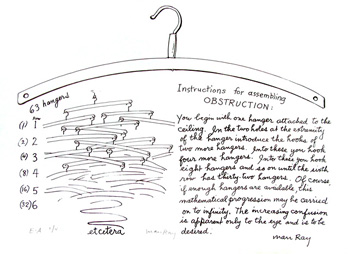 63 hangers
Instructions for assembling
OBSTRUCTION:
(1) 1
(2) 2
(4) 3
(8) 4
(16) 5
(32) 6
etcetera
E.A.
man Ray
You begin with one hanger attached to the
ceiling. In the two holes at the extremity
of the hanger introduce the hooks of
two more hangers. Into these you hook
four more hangers. Into these you hook
eight hangers and so on until the sixth
row has thirty-two hangers. Of course,
if enough hangers are available, this
mathematical progression may be carried
on to infinity. The increasing confusion
is apparent only to the eye and is to be
desired.
Man Ray